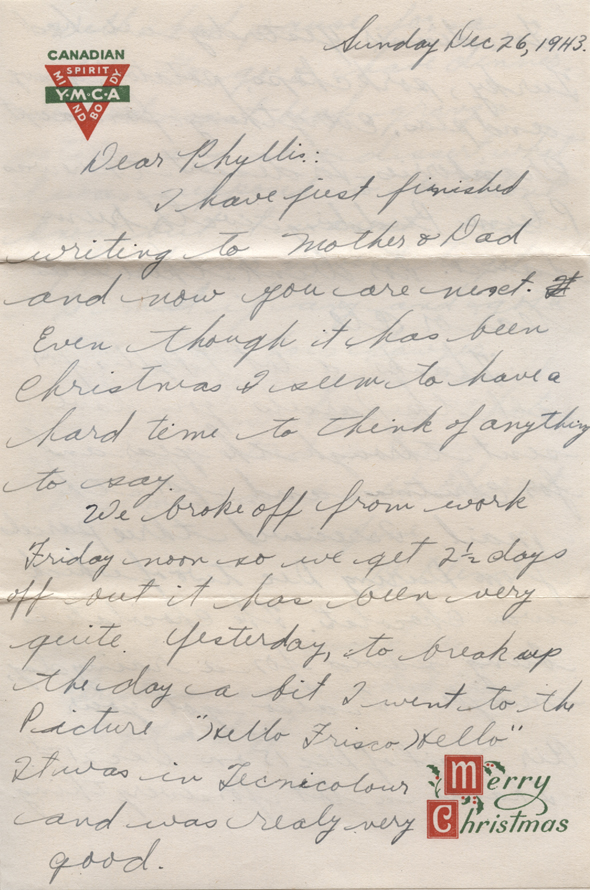 Sunday Dec 26, 1943.
CANADIAN
SPIRIT
MIND BODY
Y·M·C·A
Dear Phyllis:
I have just finished
writing to Mother & Dad
and now you are next.
Even though it has been
Christmas I seem to have a
hard time to think of anything
to say.
We broke off from work
Friday noon so we get 2½ days
off but it has been very
quite. Yesterday, to break up
the day a bit I went to the
Picture "Hello Frisco Hello"
It was in Tecnicolour
and was realy very
good.
Merry
Christmas